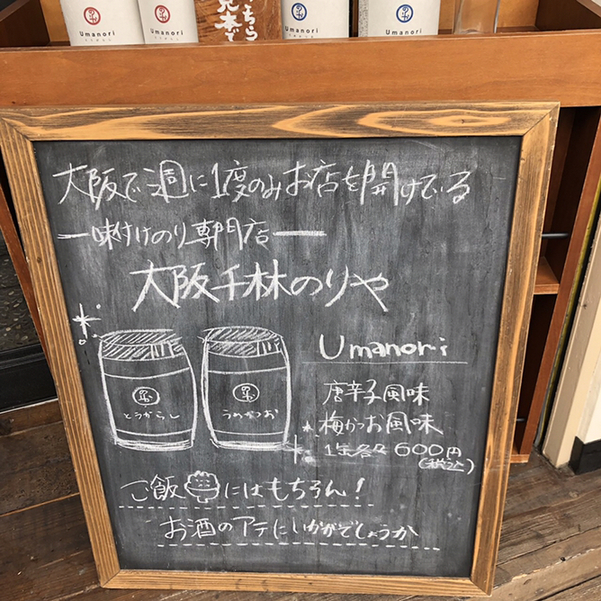 Umanori
Umanori
見本で
Umanori
Umanori
大阪で週に1度のみお店を開けている
味付けのり専門店
大阪千林のりや
Umanori
とうがらし
うめかつお
唐辛子風味
梅かつお風味
1缶各々600円
(税込)
ご飯にはもちろん!
お酒のアテにいかがでしょうか